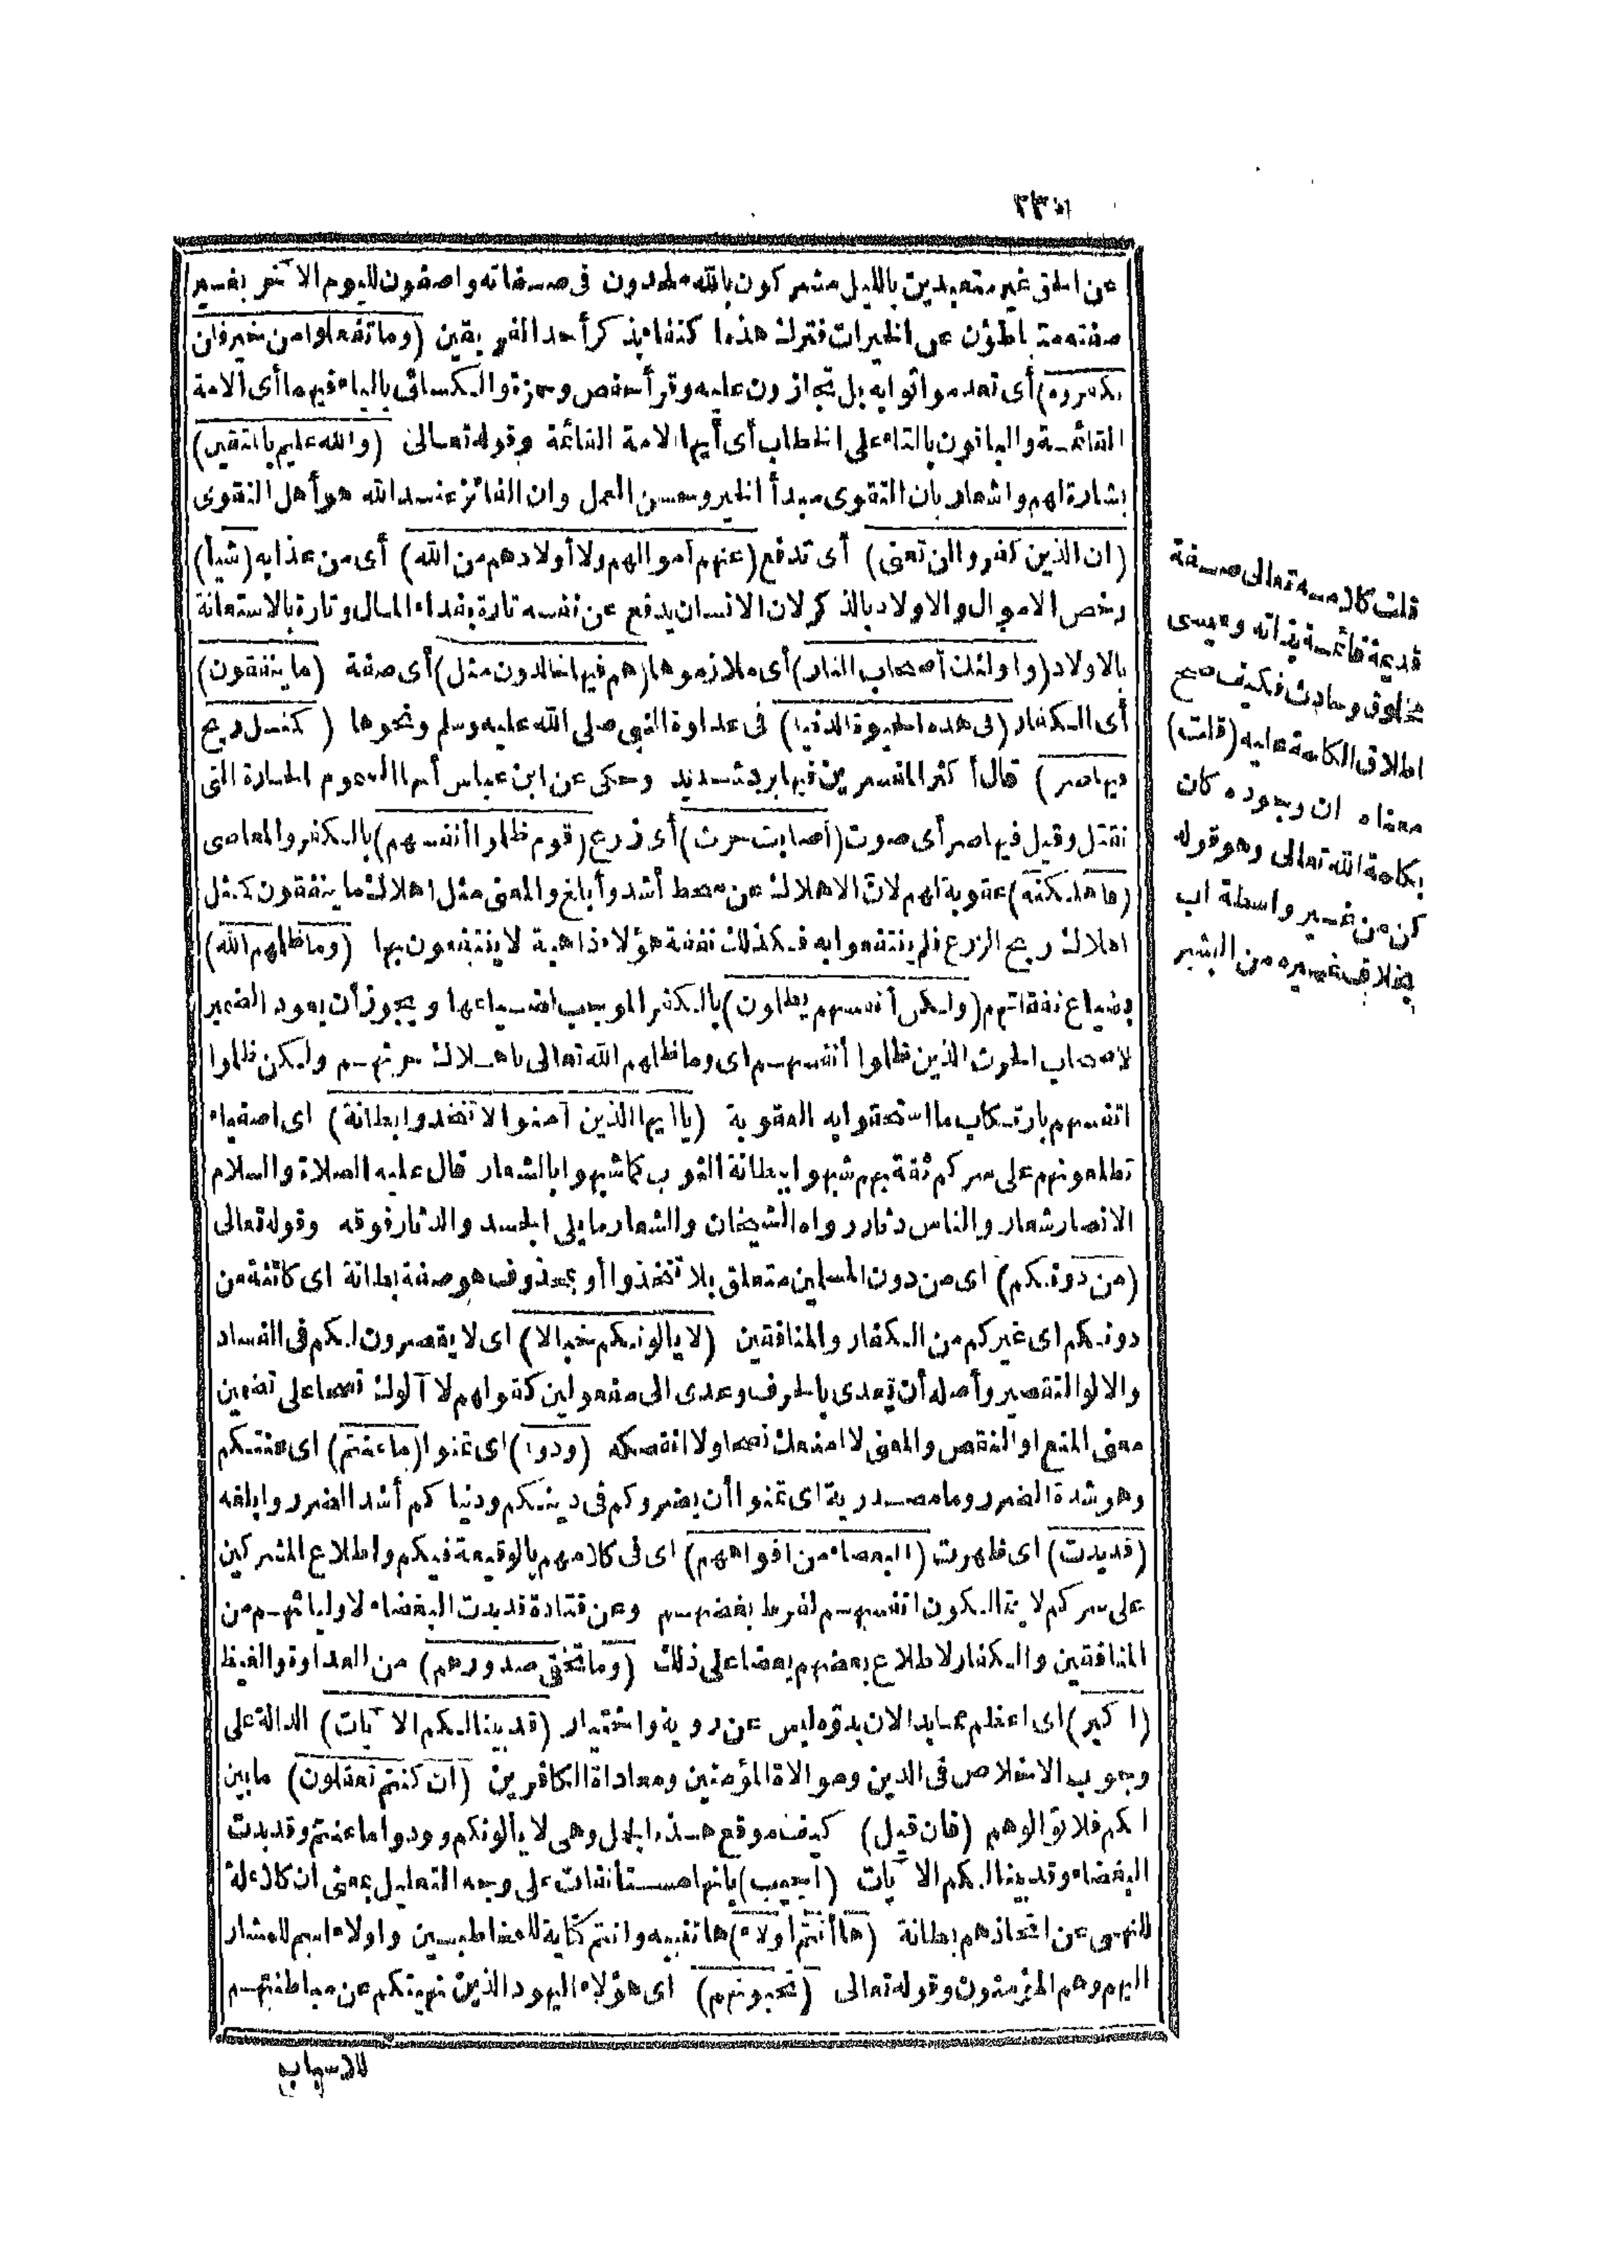 عن الحق غير متعبدين بالليل مشركون بالله ملحدون فى صفاته واصفون لليوم الآخر بغير
صفته متباطؤن عن الخيرات فترك هذه اكتفاء بذكر أحد الفريقين (وما تفعلوا من خير فلن
تكفروه) أى تعدموا ثوابه بل تجازون عليه وقرأ حفص وحمزة والكسائى بالياء فيهما أى الامة
القائمة والباقون بالتاء على الخطاب أى أيها الامة القائمة وقوله تعالى (والله عليم بالمتقين)
بشارة لهم واشعار بان التقوى مبدأ الخير وحسن العمل وان الفائز عند الله هو أهل التقوى
(ان الذين كفروا لن تغنى) أى تدفع (عنهم أموالهم ولا أولادهم من الله) أى من عذابه (شيأ)
وخص الاموال والاولاد بالذكر لان الانسان يدفع عن نفسه تارة بفداء المال وتارة بالاستعانة
بالاولاد (وأولئك أصحاب النار) أى ملازموها (هم فيها خالدون مثل) أى صفة (ما ينفقون)
أى الكفار (فى هذه الحيوة الدنيا) فى عداوة النبى صلى الله عليه وسلم ونحوها (كمثل ريح
فيها صر) قال أكثر المفسرين فيها برد شديد وحكى عن ابن عباس أنها السموم الحارة التى
تقتل وقيل فيها صر أى صوت (أصابت حرث) أى زرع (قوم ظلموا أنفسهم) بالكفر والمعاصى
(فاهلكته) عقوبة لهم لان الاهلاك عن سخط أشد وأبلغ والمعنى مثل اهلاك ما ينفقون كمثل
اهلاك ريح الزرع فلم ينتفعوا به فكذلك نفقة هؤلاء ذاهبة لا ينتفعون بها (وما ظلمهم الله)
بضياع نفقاتهم (ولكن أنفسهم يظلمون) بالكفر الموجب لضياعها ويجوز أن يعود الضمير
لاصحاب الحرث الذين ظلموا أنفسهم اى وما ظلمهم الله تعالى باهلاك حرثهم ولكن ظلموا
انفسهم بارتكاب ما استحقوا به العقوبة (يا ايها الذين آمنوا لا تتخذوا بطانة) اى اصفياء
تطلعونهم على سركم ثقة بهم شبهوا ببطانة الثوب كما شبهوا بالشعار قال عليه الصلاة والسلام
الانصار شعار والناس دثار رواه الشيخان والشعار ما يلى الجسد والدثار فوقه وقوله تعالى
(من دونكم) اى من دون المسلمين متعلق بلا تتخذوا أو بمحذوف هو صفة بطانة اى كائنة من
دونكم اى غيركم من الكفار والمنافقين (لا يالونكم خبالا) اى لا يقصرون لكم فى الفساد
والالو التقصير وأصله أن يعدى بالحرف وعدى الى مفعولين كقولهم لا آلوك نصحا على تضمين
معنى المنع او النقص والمعنى لا امنعك نصحا ولا انقصكه (ودوا) اى تمنوا (ما عنتم) اى عنتكم
وهو شدة الضرر وما مصدرية اى تمنوا أن يضروكم فى دينكم ودنياكم أشد الضرر وابلغه
(قد بدت) اى ظهرت (البغضاء من افواههم) اى فى كلامهم بالوقيعة فيكم واطلاع المشركين
على سركم لا يتمالكون انفسهم لفرط بغضهم وعن قتادة قد بدت البغضاء لاوليائهم من
المنافقين والكفار لاطلاع بعضهم بعضا على ذلك (وما تخفى صدورهم) من العداوة والغيظ
(اكبر) اى اعظم مما بدا لان بدوه ليس عن روية واختيار (قد بينا لكم الآيات) الدالة على
وجوب الاخلاص فى الدين وموالاة المؤمنين ومعاداة الكافرين (ان كنتم تعقلون) ما بين
لكم فلا توالوهم (فان قيل) كيف موقع هذه الجمل وهى لا يألونكم وودوا ما عنتم وقد بدت
البغضاء وقد بينا لكم الآيات (اجيب) بانها مستأنفات على وجه التعليل بمعنى ان كلا علة
للنهى عن اتخاذهم بطانة (ها أنتم أولاء) ها تنبيه وانتم كناية للمخاطبين واولاء اسم للمشار
اليهم وهم المؤمنون وقوله تعالى (تحبونهم) اى هؤلاء اليهود الذين نهيتكم عن مباطنتهم
للاسباب
قلت كلامه تعالى صفة
قديمة قائمة بذاته وعيسى
مخلوق وحادث فكيف صح
اطلاق الكلمة عليه (قلت)
معناه ان وجوده كان
بكلمة الله تعالى وهو قوله
كن من غير واسطة اب
بخلاف غيره من البشر